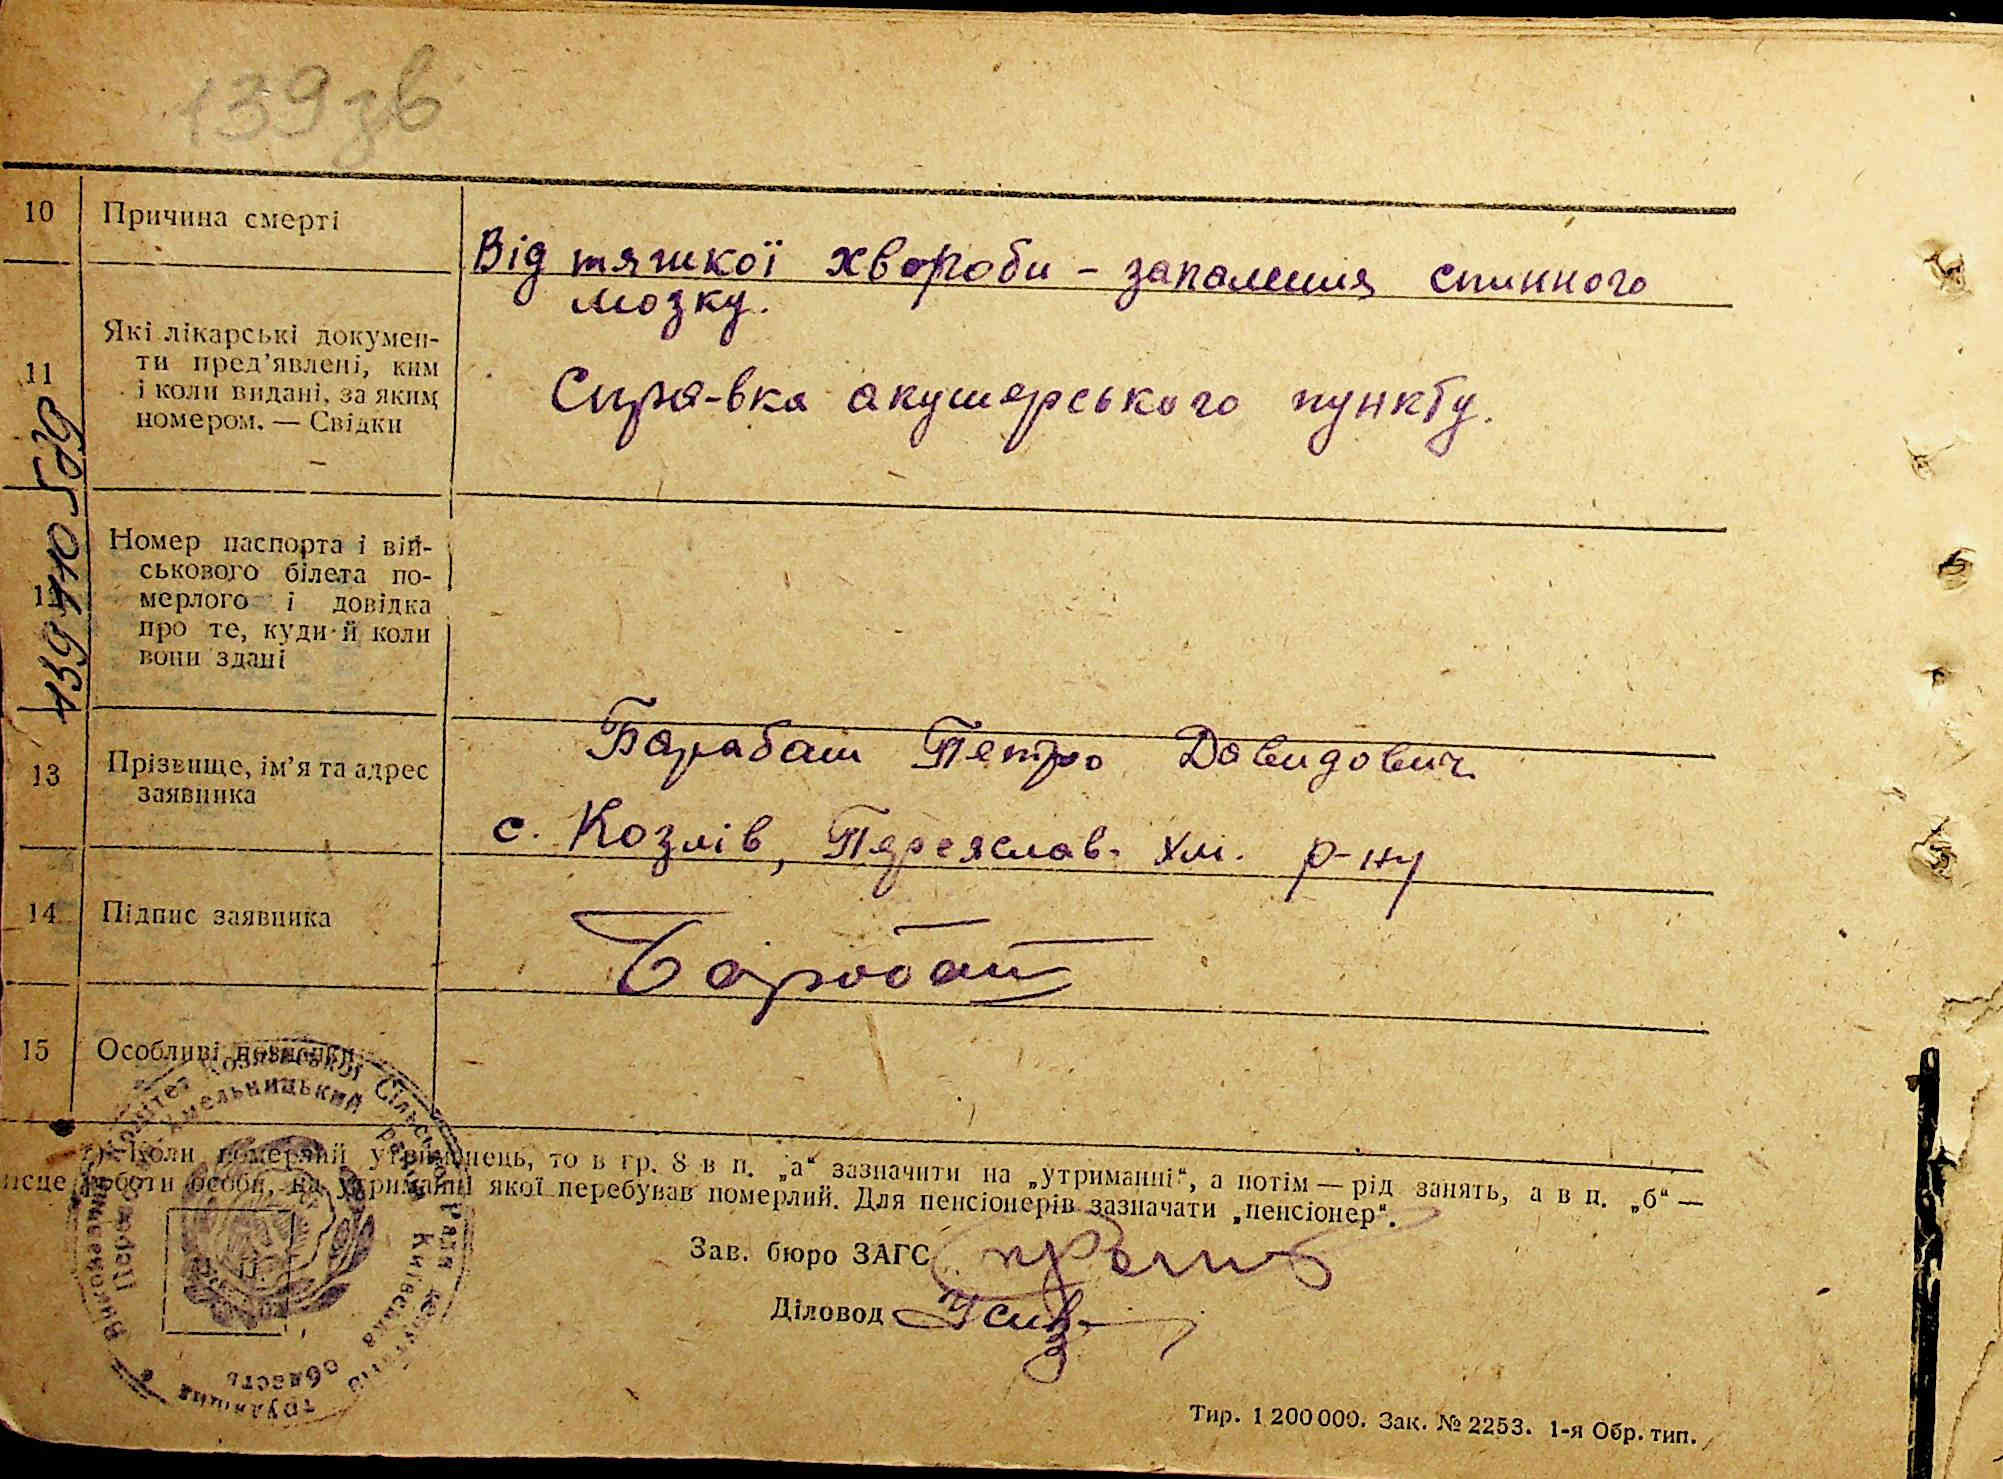 139 зв
10 Причина смерті
Від тяшкої хвороби - запалення спинного
мозку.
11 Які лікарські докумен-
ти пред'явлені, ким
і коли видані, за яким
номером. — Свідки
Спра-вка акушерського пункту.
Номер паспорта і вій-
ськового білета по-
12 мерлого і довідка
про те, куди й коли
вони здані
13 Прізвище, ім'я та адрес
заявника
Барабаш Петро Давидович
с. Козлів, Переяслав. Хм. р-ну
14 Підпис заявника
Барабаш
15 Особливі позначки
Виконавчий комітет Козлівської Сільської Ради депутатів трудящих
Хмельницький район Київська область
*) Коли померлий утриманець, то в гр. 8 в п. „а“ зазначити на „утриманні“, а потім — рід занять, а в п. „б“ —
місце роботи особи, на утриманні якої перебував померлий. Для пенсіонерів зазначати „пенсіонер“.
Зав. бюро ЗАГС
Діловод
Тир. 1 200 000. Зак. № 2253. 1-я Обр. тип.